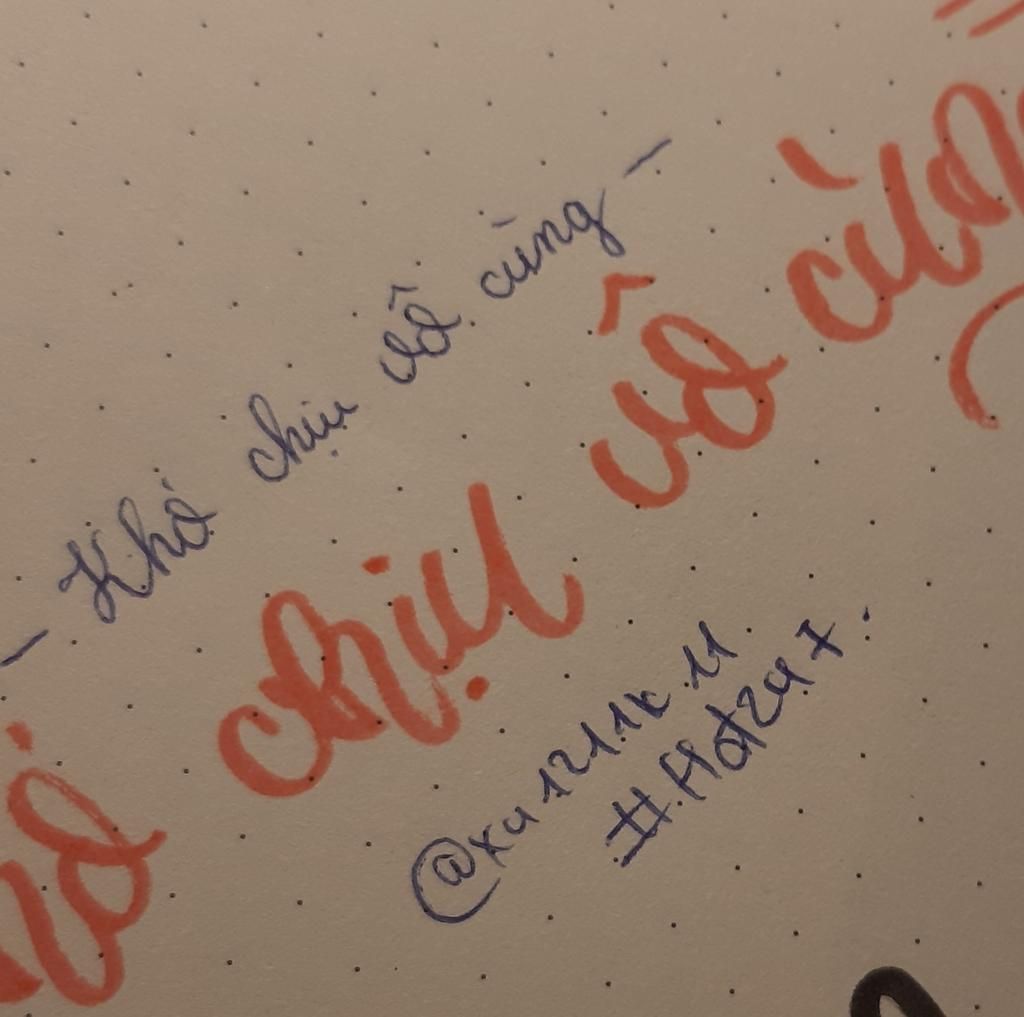 - Khó chịu vô cùng -
chịu vô
@xu1211k11
#Hot247.